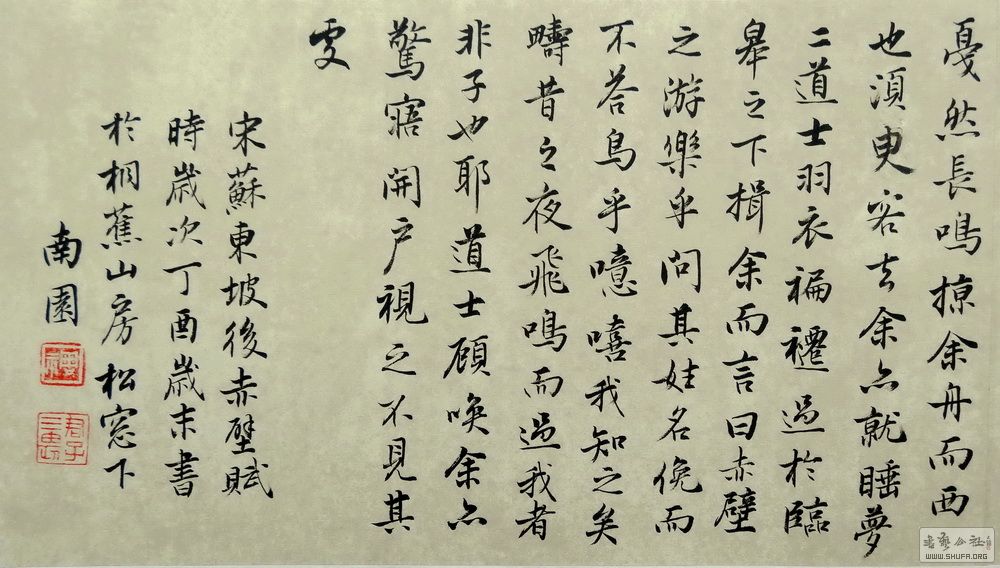 戛然長鳴掠余舟而西
也須臾客去余亦就睡夢
二道士羽衣褊褼過於臨
皋之下揖余而言曰赤壁
之游樂乎問其姓名俛而
不荅烏乎噫嘻我知之矣
疇昔之夜飛鳴而過我者
非子也耶道士顧喚余亦
驚寤開户視之不見其
處
宋蘇東坡後赤壁賦
時歲次丁酉歲末書
於桐蕉山房松窓下
南園
WWW.SHUFA.ORG